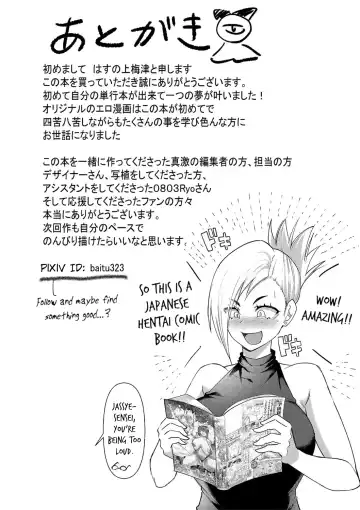 あとがき
初めまして はすの上梅津と申します
この本を買っていただき誠にありがとうございます。
初めて自分の単行本が出来て一つの夢が叶いました！
オリジナルのエロ漫画はこの本が初めてで
四苦八苦しながらもたくさんの事を学び色んな方に
お世話になりました
この本を一緒に作ってくださった真激の編集者の方、担当の方
デザイナーさん、写植をしてくださった方、
アシスタントをしてくださった0803Ryoさん
そして応援してくださったファンの方々
本当にありがとうございます。
次回作も自分のペースで
のんびり描けたらいいなと思います。
PIXIV ID: baitu323
Follow and maybe find
something good...?
ドキ
SO THIS IS A
JAPANESE
HENTAI COMIC
BOOK!!
WOW!
AMAZING!!
ドキ
JASSYE-
SENSEI,
YOU'RE
BEING TOO
LOUD.